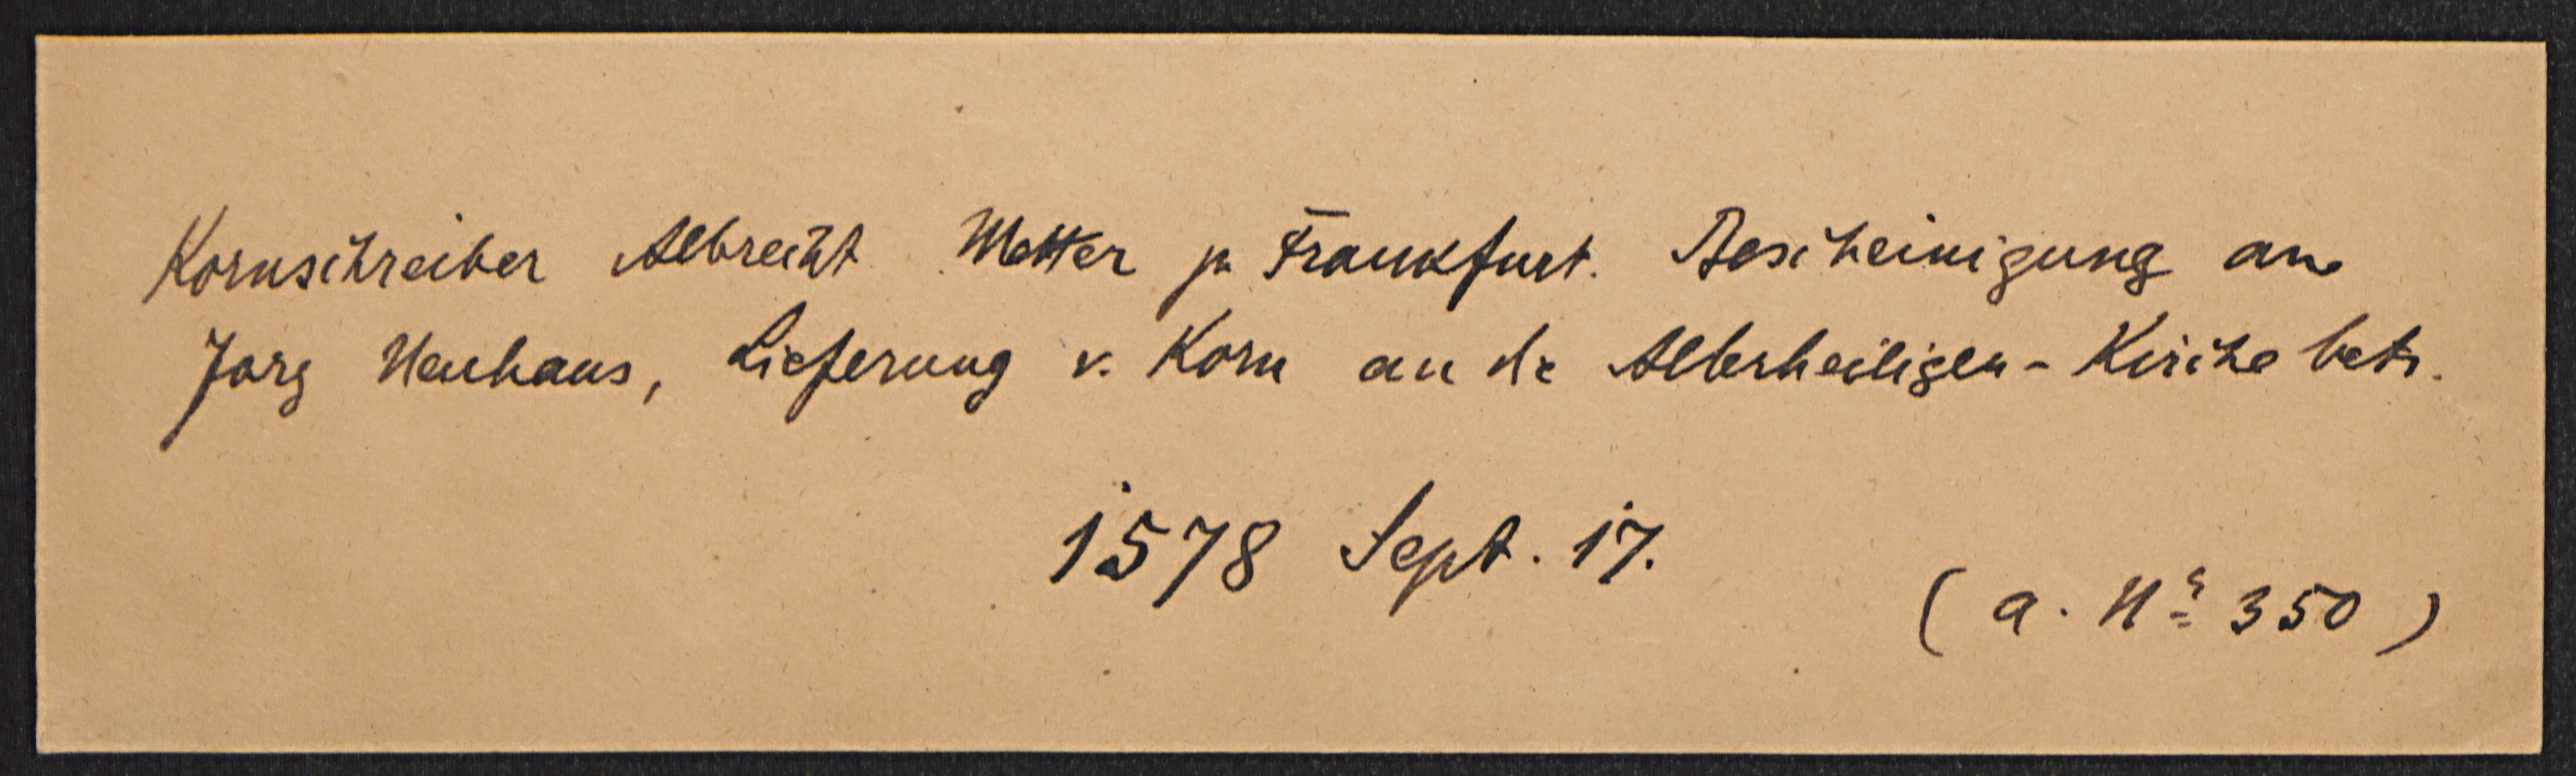 Kornschreiber Albrecht Metter zu Frankfurt. Bescheinigung an
Jorg Neuhaus, Lieferung v. Korn an die Allerheiligen-Kirche betr.
1578 Sept. 17.
(a. No 350)